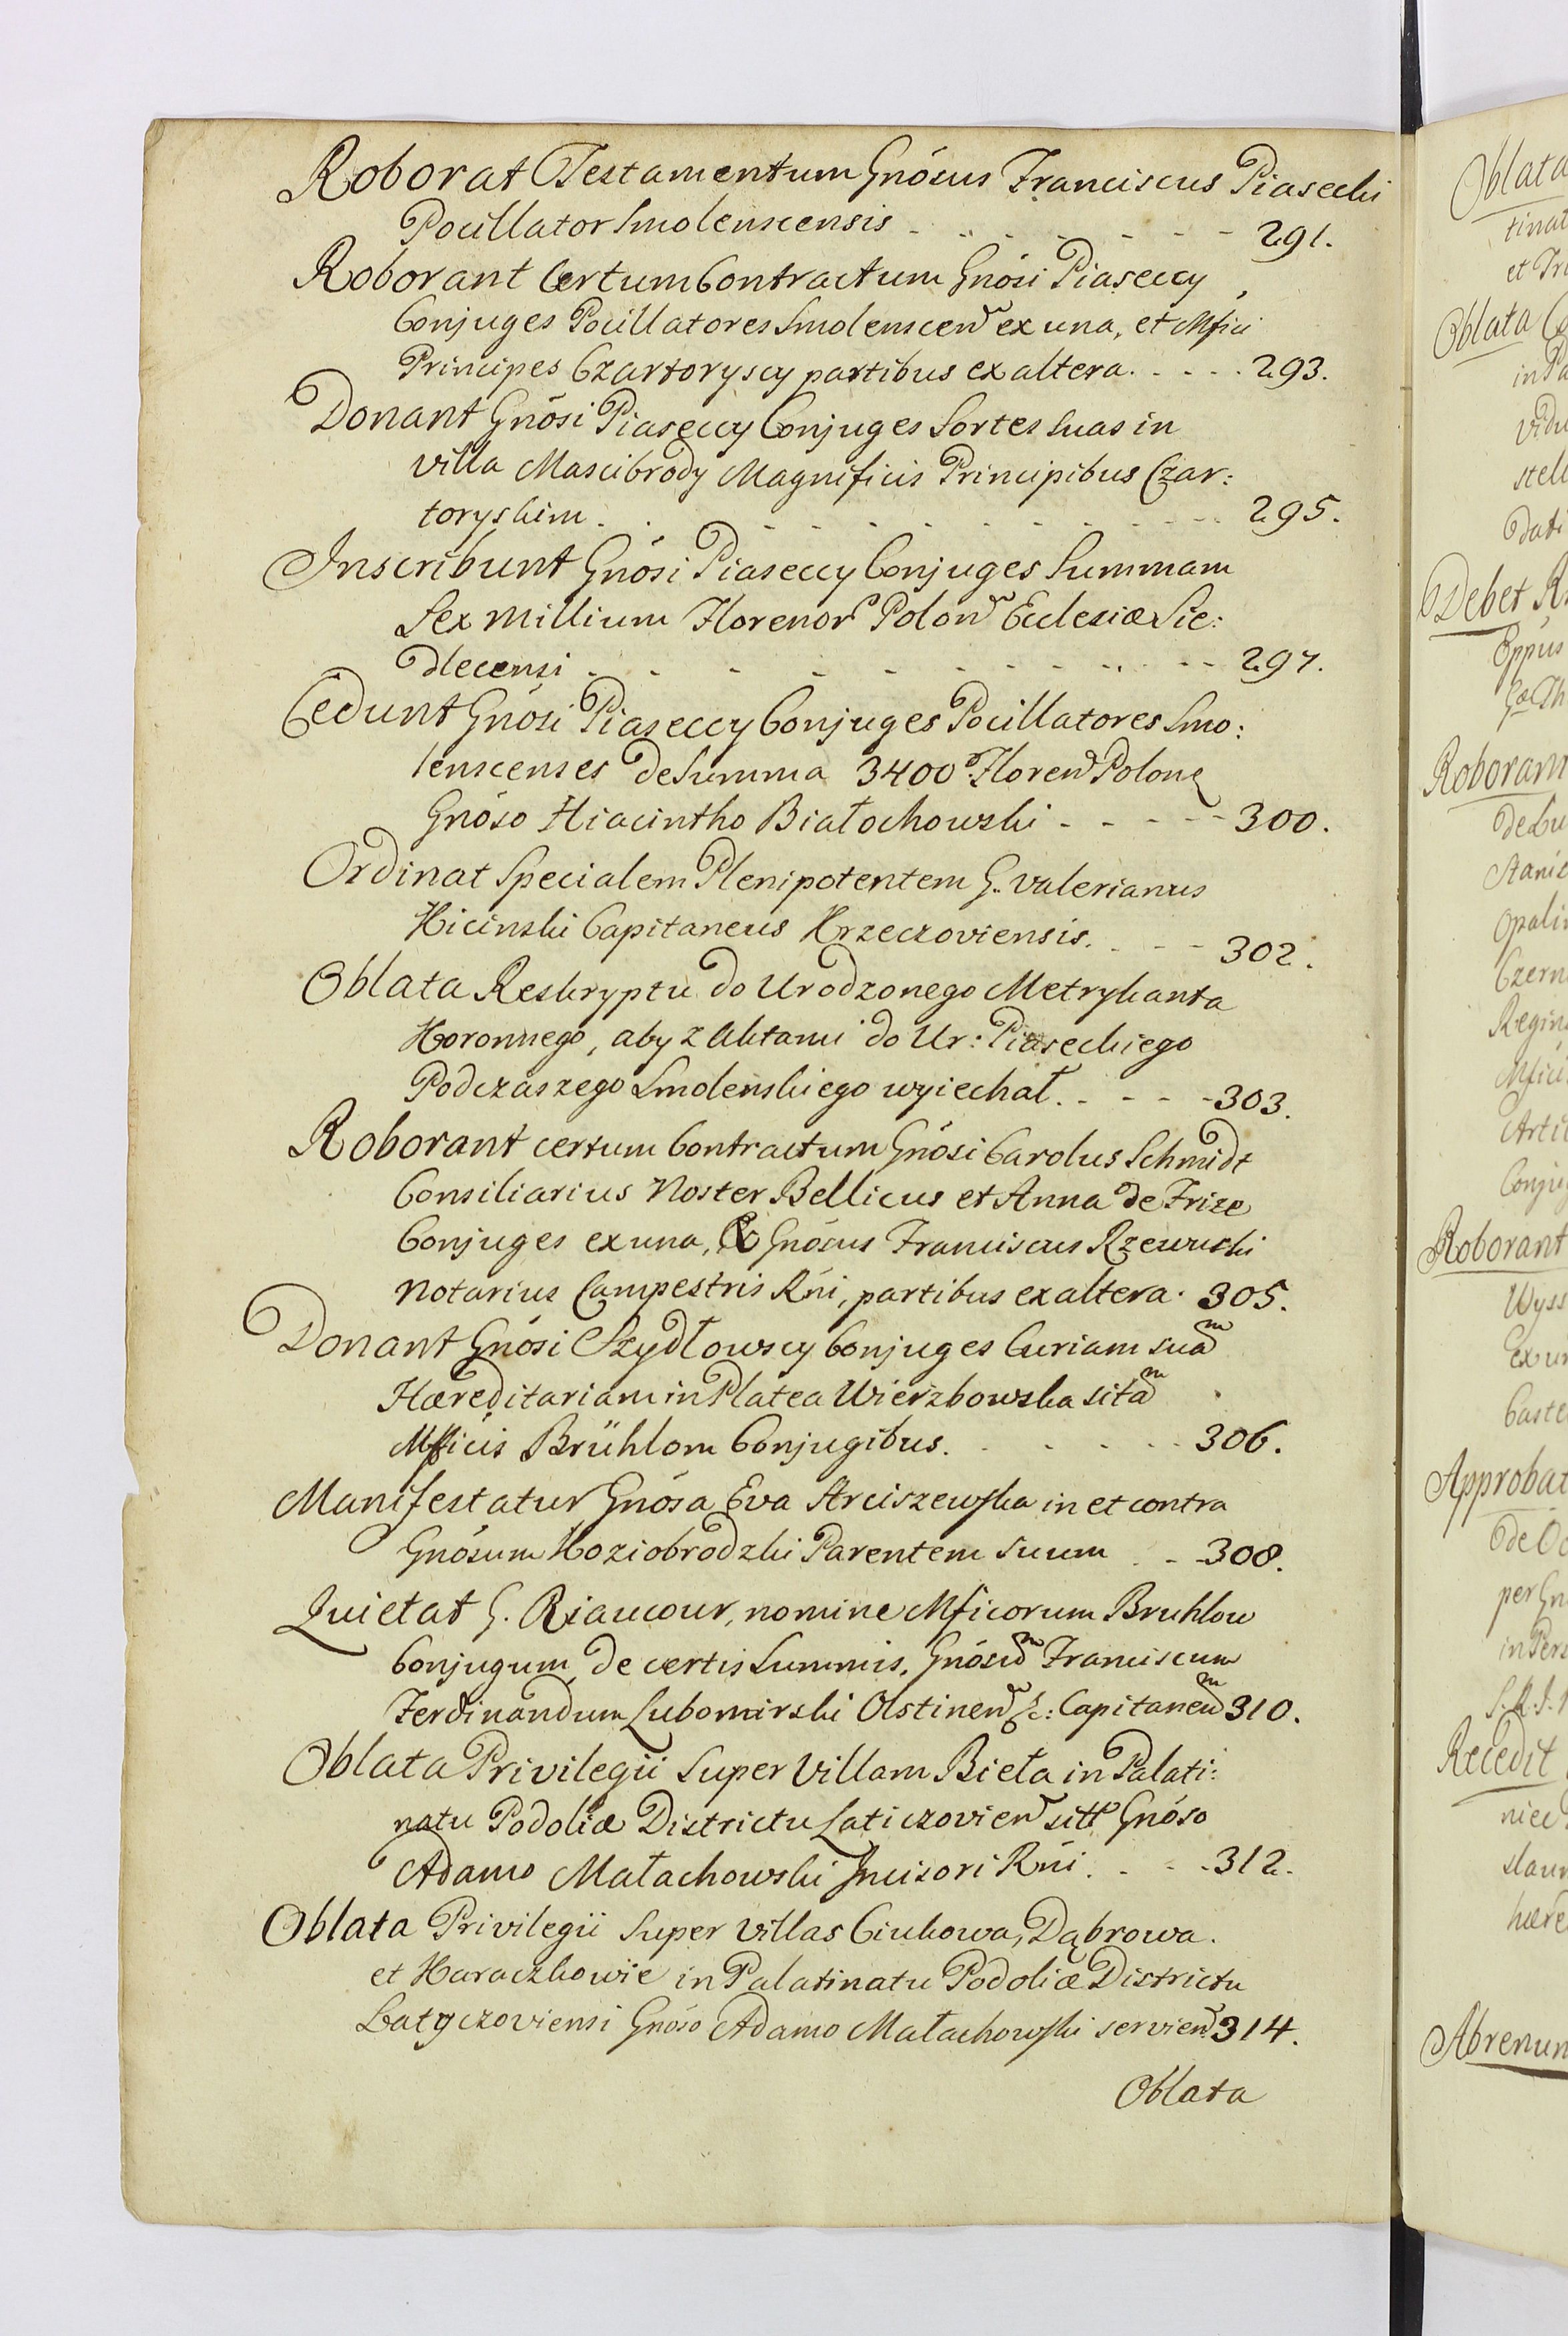 Roborat Testamentum Gnósus Franciscus Piasecki
Pocillator Smolenscensis - - - - - - - 291.
Roborant Certum Contractum Gnósi Piaseccy,
Conjuges Pocillatores Smolenscen ex una, et Mfici
Principes Czartoryscy partibus ex altera. - - - . 293.
Donant Gnósi Piaseccy Conjuges Sortes suas in
villa Mascibrody Magnificis Principibus Czar:
toryskim. - - - - - - - - - - 295.
Inscribunt Gnósi Piaseccy Conjuges Summam
Sex Millium Florenor Polon Ecclesiæ Sie:
dlecensi - - - - - - - - - - 297.
Cedunt Gnósi Piaseccy Conjuges Pocillatores Smo:
lenscenses de Summa 3400 Floren Polon
Gnóso Hiacintho Białochowski - - - - - 300.
Ordinat Specialem Plenipotentem G. Valerianus
Kicinski Capitaneus Krzeczoviensis. - - - 302.
Oblata Reskryptu do Urodzonego Metrykanta
Koronnego, aby z Aktami do Ur: Piaseckiego
Podczaszego Smolenskiego wyiechał. - - - - 303.
Roborant certum Contractum Gnósi Carolus Schmidt
Consiliarius Noster Bellicus et Anna de Frize
Conjuges ex una, & Gnósus Franciscus Rzewuski
Notarius Campestris Rńi, partibus ex altera. 305.
Donant Gnósi Szydłowscy Conjuges Curiam suam
Hæreditariam in Platea Wierzbowska sitam
Mficis Brühlom Conjugibus. - - - - - 306.
Manifestatur Gnósa Eva Arciszewska in et contra
Gnósum Koziobrodzki Parentem suum - - 308.
Quietat G. Riaucour, nomine Mficorum Bruhlow
Conjugum, de certis Summis, Gnósum Franciscum
Ferdinandum Lubomirski Olstinen &c: Capitaneum 310.
Oblata Privilegii Super Villam Bieła in Palati:
natu Podoliæ Districtu Laticzovien sitt Gnóso
Adamo Małachowski Incisori Rńi. - - - 312.
Oblata Privilegii Super Villas Ciukowa, Dąbrowa.
et Karaczkowie in Palatinatu Podoliæ Districtu
Latyczoviensi Gnóso Adamo Małachowski servien 314.
Oblata
Oblata
tinat
et Tr
Oblata Co
in Pa
vidu
stell
dati
Debet
Eppus
Roborant
de Lu
Stanis
Opalin
Czern
Regin
Mfici
Artic
Conjug
Roborant
Wyss
ex un
Caste
Approbat
de
per Gn
in Pers
Recedit
niec
slaw
hære
Abrenun